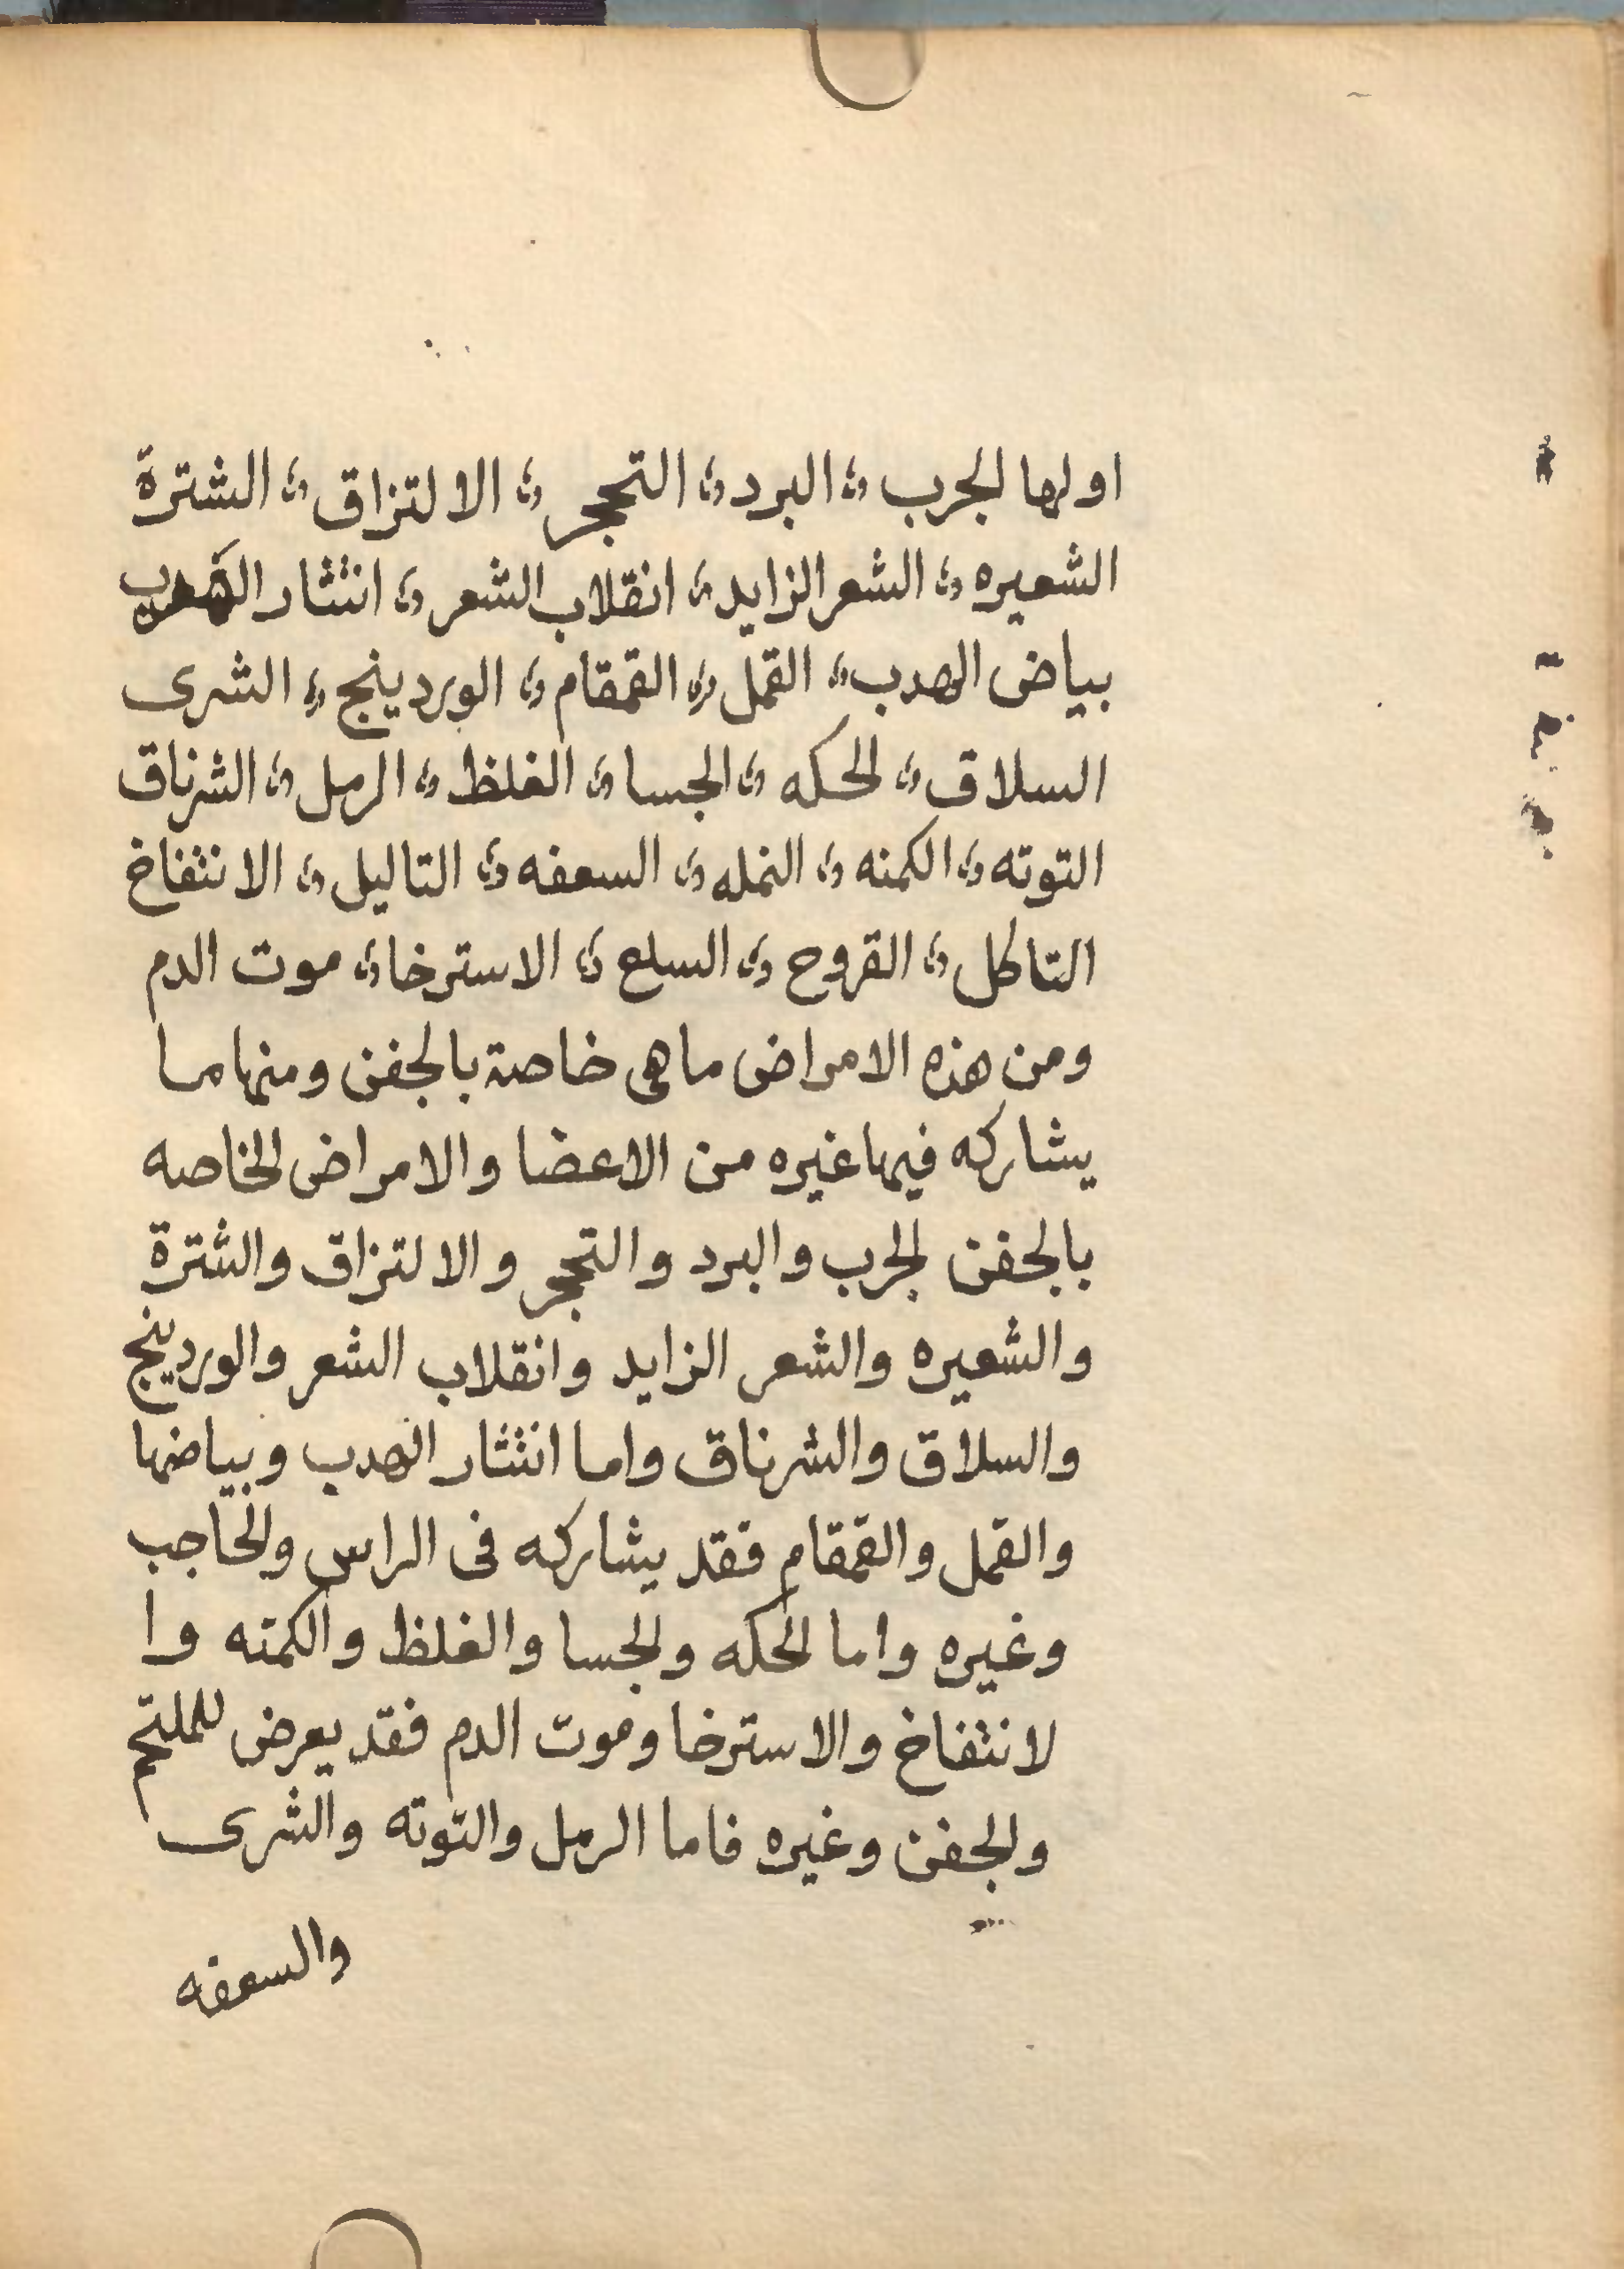 اولها الجرب ؛ البرد ؛ التحجر ؛ الالتزاق ؛ الشترة
الشعيره ؛ الشعر الزايد ؛ انقلاب الشعر ؛ انتثار الهدب
بياض الهدب ؛ القمل ؛ القمقام ؛ الوردينج ؛ الشرى
السلاق ؛ الحكه ؛ الجسا ؛ الغلظ ؛ الرمل ؛ الشرناق
التوته ؛ الكمنه ؛ النمله ؛ السعفه ؛ التاليل ؛ الانتفاخ
التاكل ؛ القروح ؛ السلع ؛ الاسترخا ؛ موت الدم
ومن هذه الامراض ما هى خاصة بالجفن ومنها مما
يشاركه فيها غيره من الاعضا والامراض الخاصه
بالجفن الجرب والبرد والتحجر والالتزاق والشترة
والشعيره والشعر الزايد وانقلاب الشعر والوردينج
والسلاق والشرناق واما انتثار الهدب وبياضها
والقمل والقمقام فقد يشاركه فى الراس والحاجب
وغيره واما الحكه والجسا والغلظ والكمته وا
لانتفاخ والاسترخا وموت الدم فقد يعرض للملتحم
والجفن وغيره فاما الرمل والتوته والشرى
والسعفه